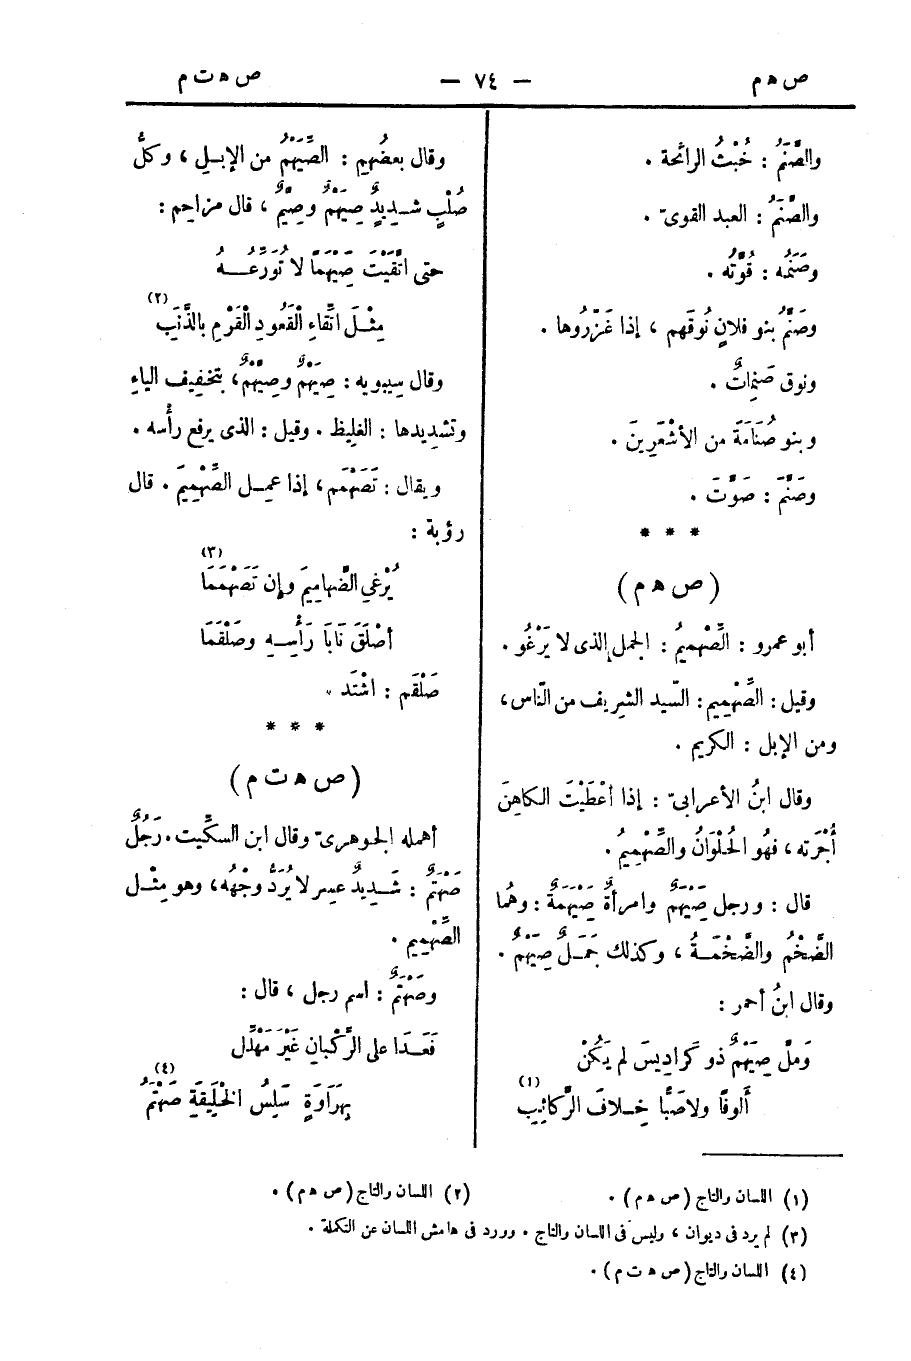 ص ه م
— ٧٤ —
ص ه ت م
والصَّنَمُ : خُبْثُ الرائحة .
والصَّنَمُ : العبد القوىّ .
وصَنَمُه : قُوَّتُه .
وصَنَّمُ بنو فلانٍ نُوقَهم ، إذا غَزَّرُوها .
ونوق صَنِماتٌ .
وبنو صُنَامَةَ من الأشْعَرِينَ .
وصَنَّمَ : صَوَّتَ .
* * *
( ص ه م )
أبو عمرو : الصِّهْمِيمُ : الجمل الذى لا يَرْغُو .
وقيل : الصِّهْمِيم : السَّيد الشريف من النّاس ،
ومن الإبل : الكريم .
وقال ابنُ الأعرابىّ : إذا أعْطَيْتَ الكاهِنَ
أُجْرَته ، فهُو الحُلْوَانُ والصِّهْمِيمُ .
قال : ورجل صِيَهْمٌ وامرأةٌ صِيَهْمَةٌ : وهُما
الضَّخْمُ والضَّخْمَةُ ، وكذلك جَمَلٌ صِيَهْمٌ .
وقال ابنُ أحمر :
وَمَلَّ صِيَهْمٌ ذو كَرادِيسَ لم يَكُنْ
أَلوفًا ولاصَبًّا خِلافَ الرَّكائِبِ (١)
وقال بعضُهم : الصِّيَهْمُ من الإبلِ ، وكلُّ
صُلْبٍ شديدٍ صِيَهْمٌ وصِيَّمٌ ، قال مزاحِم :
حتى اتَّقَيْتَ صِيَهْمًا لا تُوَرِّعُهُ
مِثْلَ اتِّقاءِ القَعُودِ القَرْمِ بالذَّنَبِ (٢)
وقال سِيبويه : صِيَهْمٌ وصِيَّهْمٌ ، بتخفِيف الياءِ
وتشدِيدها : الغلِيظ . وقيل : الذى يرفع رأْسه .
ويقال : تَصَهْمَم ، إذا عمِل الصِّهْمِيمَ . قال
رؤبة :
يُرْغِي الصَّهامِيمَ وإن تَصَهْمَمَا (٣)
أصْلَقَ نَابَا رَأْسِهِ وصَلْقَمَا
صَلْقَم : اشْتَد .
* * *
( ص ه ت م )
أهمله الجوهرىّ وقال ابن السكِّيت . رَجُلٌ
صَهْتَمٌ : شَدِيدٌ عسِر لا يُرَدُّ وجْهُه ، وهو مِثْل
الصِّهْمِيم .
وصَهْتَمٌ : اسم رجل ، قال :
فَعَدَا على الرُّكْبانِ غَيْرَ مَهَلِّل
بِهَرَاوَةٍ سَلِسُ الخَلِيقَةِ صَهْتَمُ (٤)
(١) اللسان والتاج (ص ه م) .
(٢) اللسان والتاج (ص ه م) .
(٣) لم يرد فى ديوان ، وليس فى اللسان والتاج . وورد فى هامش اللسان عن التكملة .
(٤) اللسان والتاج (ص ه ت م) .